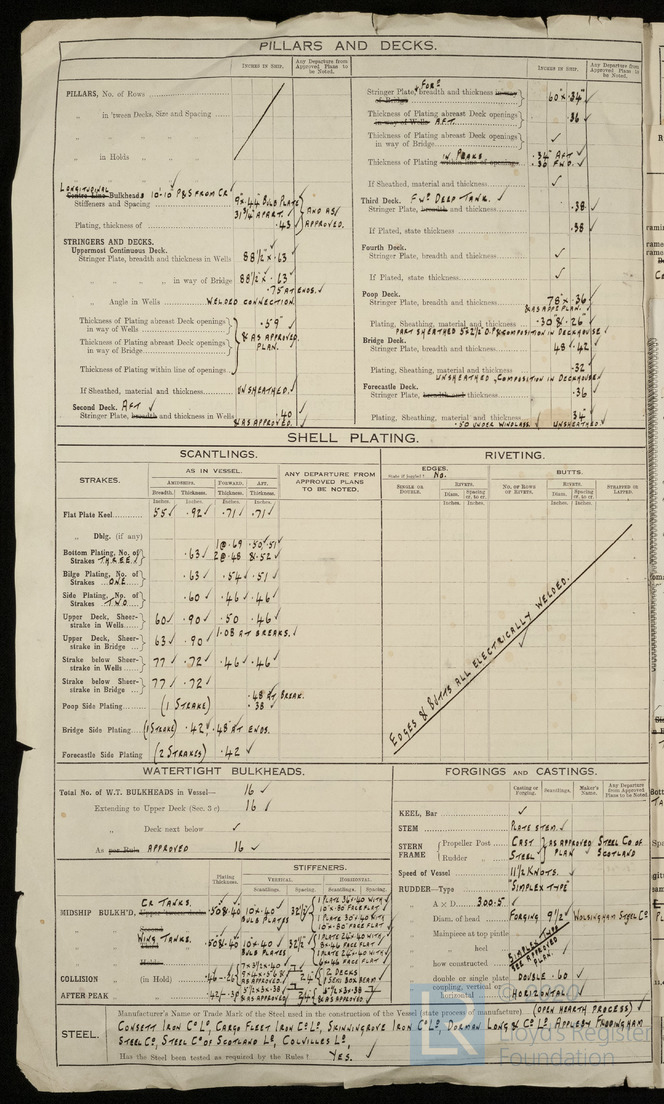 PILLARS AND DECKS.
INCHES IN SHIP.
Any Departure from Approved Plans to be Noted.
PILLARS, No. of Rows
„ in 'tween Decks, Size and Spacing
„ „ „
„ in Holds „ „
„ „ „
LONGITUDINAL
Centre Line Bulkheads 10'-10" P&S FROM CL
Stiffeners and Spacing 9"×.44 BULB PLATE 31¾" APART. } AND AS APPROVED.
Plating, thickness of .43
STRINGERS AND DECKS.
Uppermost Continuous Deck.
Stringer Plate, breadth and thickness in Wells 88½" × .63 ✓
„ „ in way of Bridge 88½" × .63 ✓
.75 AT ENDS. ✓
„ Angle in Wells WELDED CONNECTION.
Thickness of Plating abreast Deck openings in way of Wells } .59" ✓
Thickness of Plating abreast Deck openings in way of Bridge } & AS APPROVED PLAN.
Thickness of Plating within line of openings
If Sheathed, material and thickness UNSHEATHED. ✓
Second Deck. AFT ✓
Stringer Plate, breadth and thickness in Wells .40
& AS APPROVED.
INCHES IN SHIP.
Any Departure from Approved Plans to be Noted.
FOR'D
Stringer Plate, breadth and thickness in way of Bridge 60" × .34" ✓
Thickness of Plating abreast Deck openings in way of Wells AFT .36 ✓
Thickness of Plating abreast Deck openings in way of Bridge ✓
IN PEAKS
Thickness of Plating within line of openings .34" AFT ✓ .36 FWD. ✓
If Sheathed, material and thickness ✓
Third Deck. FWD DEEP TANK. ✓
Stringer Plate, breadth and thickness .38 ✓
If Plated, state thickness .38 ✓
Fourth Deck.
Stringer Plate, breadth and thickness ✓
If Plated, state thickness ✓
Poop Deck.
Stringer Plate, breadth and thickness 78" × .36 ✓
Plating, Sheathing, material and thickness .30 & .26 ✓
Bridge Deck.
Stringer Plate, breadth and thickness 48 × .42 ✓
Plating, Sheathing, material and thickness .32 ✓
UNSHEATHED, COMPOSITION IN DECKHOUSE ✓
Forecastle Deck.
Stringer Plate, breadth and thickness .36 ✓
Plating, Sheathing, material and thickness .34 ✓
.50 UNDER WINDLASS. ✓ UNSHEATHED ✓
SHELL PLATING.
SCANTLINGS.
STRAKES.
AS IN VESSEL.
AMIDSHIPS. FORWARD. AFT.
Breadth. Thickness. Thickness. Thickness.
Inches. Inches. Inches. Inches.
ANY DEPARTURE FROM APPROVED PLANS TO BE NOTED.
Flat Plate Keel 55 ✓ .92 ✓ .71 ✓ .71 ✓
„ Dblg. (if any)
Bottom Plating, No. of Strakes THREE } .63 ✓ 1@.69 2@.48 .50/.51 & .52 ✓
Bilge Plating, No. of Strakes ONE } .63 ✓ .54 ✓ .51 ✓
Side Plating, No. of Strakes TWO } .60 ✓ .46 ✓ .46 ✓
Upper Deck, Sheerstrake in Wells } 60 ✓ .90 ✓ .50 .46 ✓
Upper Deck, Sheerstrake in Bridge } 63 ✓ .90 ✓ 1.08 AT BREAKS. ✓
Strake below Sheerstrake in Wells } 77 ✓ .72 ✓ .46 ✓ .46 ✓
Strake below Sheerstrake in Bridge } 77 ✓ .72 ✓
Poop Side Plating (1 STRAKE) .48 AT BREAK. .38 ✓
Bridge Side Plating (1 STRAKE) .42 ✓ .48 AT ENDS.
Forecastle Side Plating (2 STRAKES) .42 ✓
RIVETING.
EDGES.
State if joggled? No.
BUTTS.
SINGLE OR DOUBLE.
RIVETS.
Diam. Spacing cr. to cr.
Inches. Inches.
NO. OF ROWS OF RIVETS.
RIVETS.
Diam. Spacing cr. to cr.
Inches. Inches.
STRAPPED OR LAPPED.
EDGES & BUTTS ALL ELECTRICALLY WELDED.
WATERTIGHT BULKHEADS.
Total No. of W.T. BULKHEADS in Vessel 16 ✓
Extending to Upper Deck (Sec. 3 c) 16 ✓
„ Deck next below ✓
As per Rule APPROVED 16 ✓
Plating Thickness.
STIFFENERS.
VERTICAL. HORIZONTAL.
Scantlings. Spacing. Scantlings. Spacing.
CR TANKS.
MIDSHIP BULKH'D, Upper 'tween decks
BULB PLATES
WING TANKS.
BULB PLATES
COLLISION „ (in Hold)
AFTER PEAK „ „
FORGINGS AND CASTINGS.
Casting or Forging. Scantlings. Maker's Name. Any Departure from Approved Plans to be Noted.
KEEL, Bar ✓
STEM PLATE STEM. ✓
STERN FRAME { Propeller Post CAST STEEL } AS APPROVED PLAN STEEL CO. OF SCOTLAND
Rudder „
Speed of Vessel 11½ KNOTS.
RUDDER—Type "SIMPLEX TYPE"
„ A × D 300.5
„ Diam. of head FORGING 9½" WOLSINGHAM STEEL CO
„ Mainpiece at top pintle
„ „ heel
„ how constructed
SIMPLEX TYPE
„ double or single plate DOUBLE .60 ✓
„ coupling, vertical or horizontal HORIZONTAL ✓
STEEL.
Manufacturer's Name or Trade Mark of the Steel used in the construction of the Vessel (state process of manufacture) (OPEN HEARTH PROCESS)
CONSETT IRON CO LD, CARGO FLEET IRON CO LD, SKINNINGROVE IRON CO LD, DORMAN LONG & CO LD, APPLEBY FRODINGHAM
STEEL CO, STEEL CO OF SCOTLAND LD, COLVILLES LD,
Has the Steel been tested as required by the Rules? YES. ✓
© 2020
Lloyd's Register
Foundation